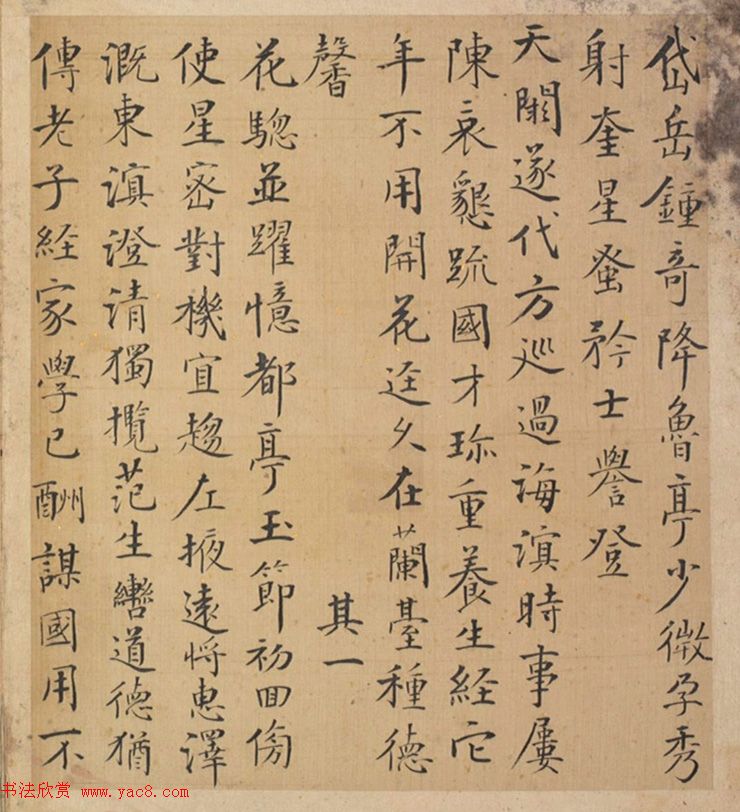 岱岳鍾奇降魯亭少微孕秀
射奎星蚤矜士譽登
天閼遂代方巡過海濵時事屢
陳哀懇疏國才珎重養生経它
年不用開花逕久在蘭臺種德
馨
其一
花驄並躍憶都亭玉節初回傍
使星密對機宜趨左掖遠將恵澤
溉東濵澄清獨攬范生轡道德猶
傳老子経家學已酬謀國用不
书法欣赏 www.yac8.com